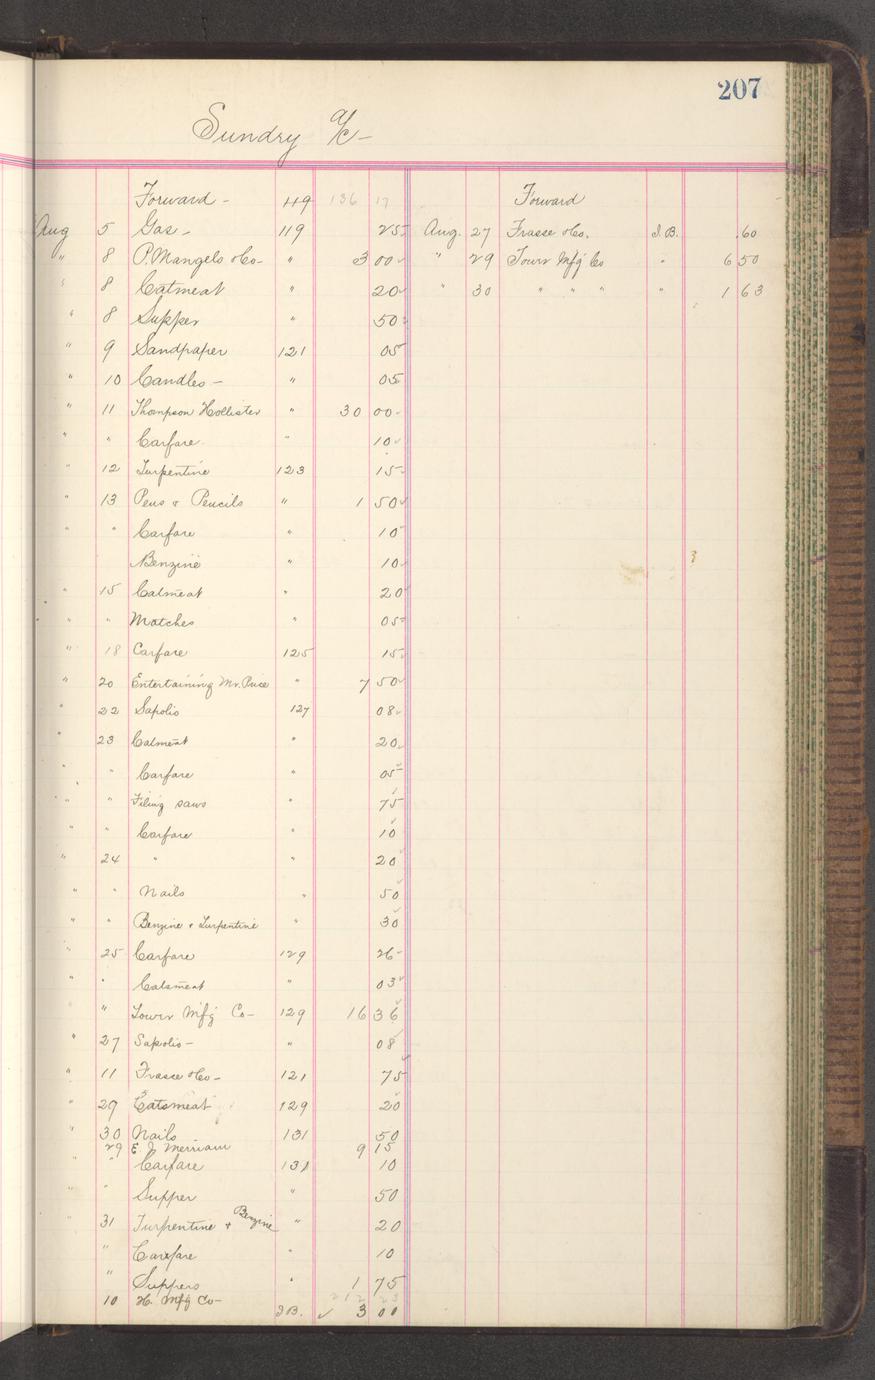 207
Sundry a/c -
Forward - 119 136 17
Aug 5 Gas - 119 25
" 8 P. Mangels & Co - " 3 00
" 8 Catmeat " 20
" 8 Supper " 50
" 9 Sandpaper 121 05
" 10 Candles - " 05
" 11 Thompson Hollister " 30 00
" " Carfare " 10
" 12 Turpentine 123 15
" 13 Pens & Pencils " 1 50
" " Carfare " 10
Benzine " 10
" 15 Catmeat " 20
" " Matches " 05
" 18 Carfare 125 15
" 20 Entertaining Mr. Price " 7 50
" 22 Sapolio 127 08
" 23 Catmeat " 20
" " Carfare " 05
" " Filing saws " 75
" " Carfare " 10
" 24 " " 20
" " Nails " 50
" " Benzine & Turpentine " 30
" 25 Carfare 129 26
" " Catsmeat " 03
" Towir Mfg Co - 129 16 36
" 27 Sapolio - " 08
" 11 Frasse & Co - 121 75
" 29 Catsmeat 129 20
" 30 Nails 131 50
29 E. J. Merriam 9 15
" " Carfare 131 10
" " Supper " 50
" 31 Turpentine & Benzine " 20
" Carefare " 10
" Suppers " 1 75
212 23
10 H. Mfg Co - J.B. ✓ 3 00
Forward
Aug. 27 Frasse & Co. J.B. .60
" 29 Towir Mfg Co " 6 50
" 30 " " " " 1 63